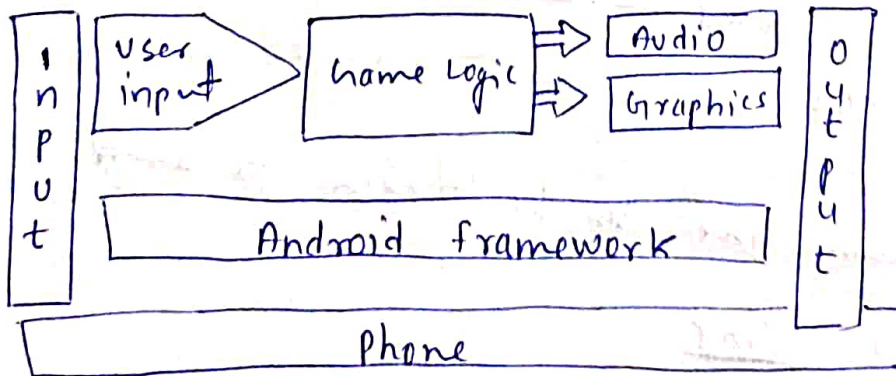 Input
User
input
Game Logic
Audio
Graphics
Output
Android framework
Phone